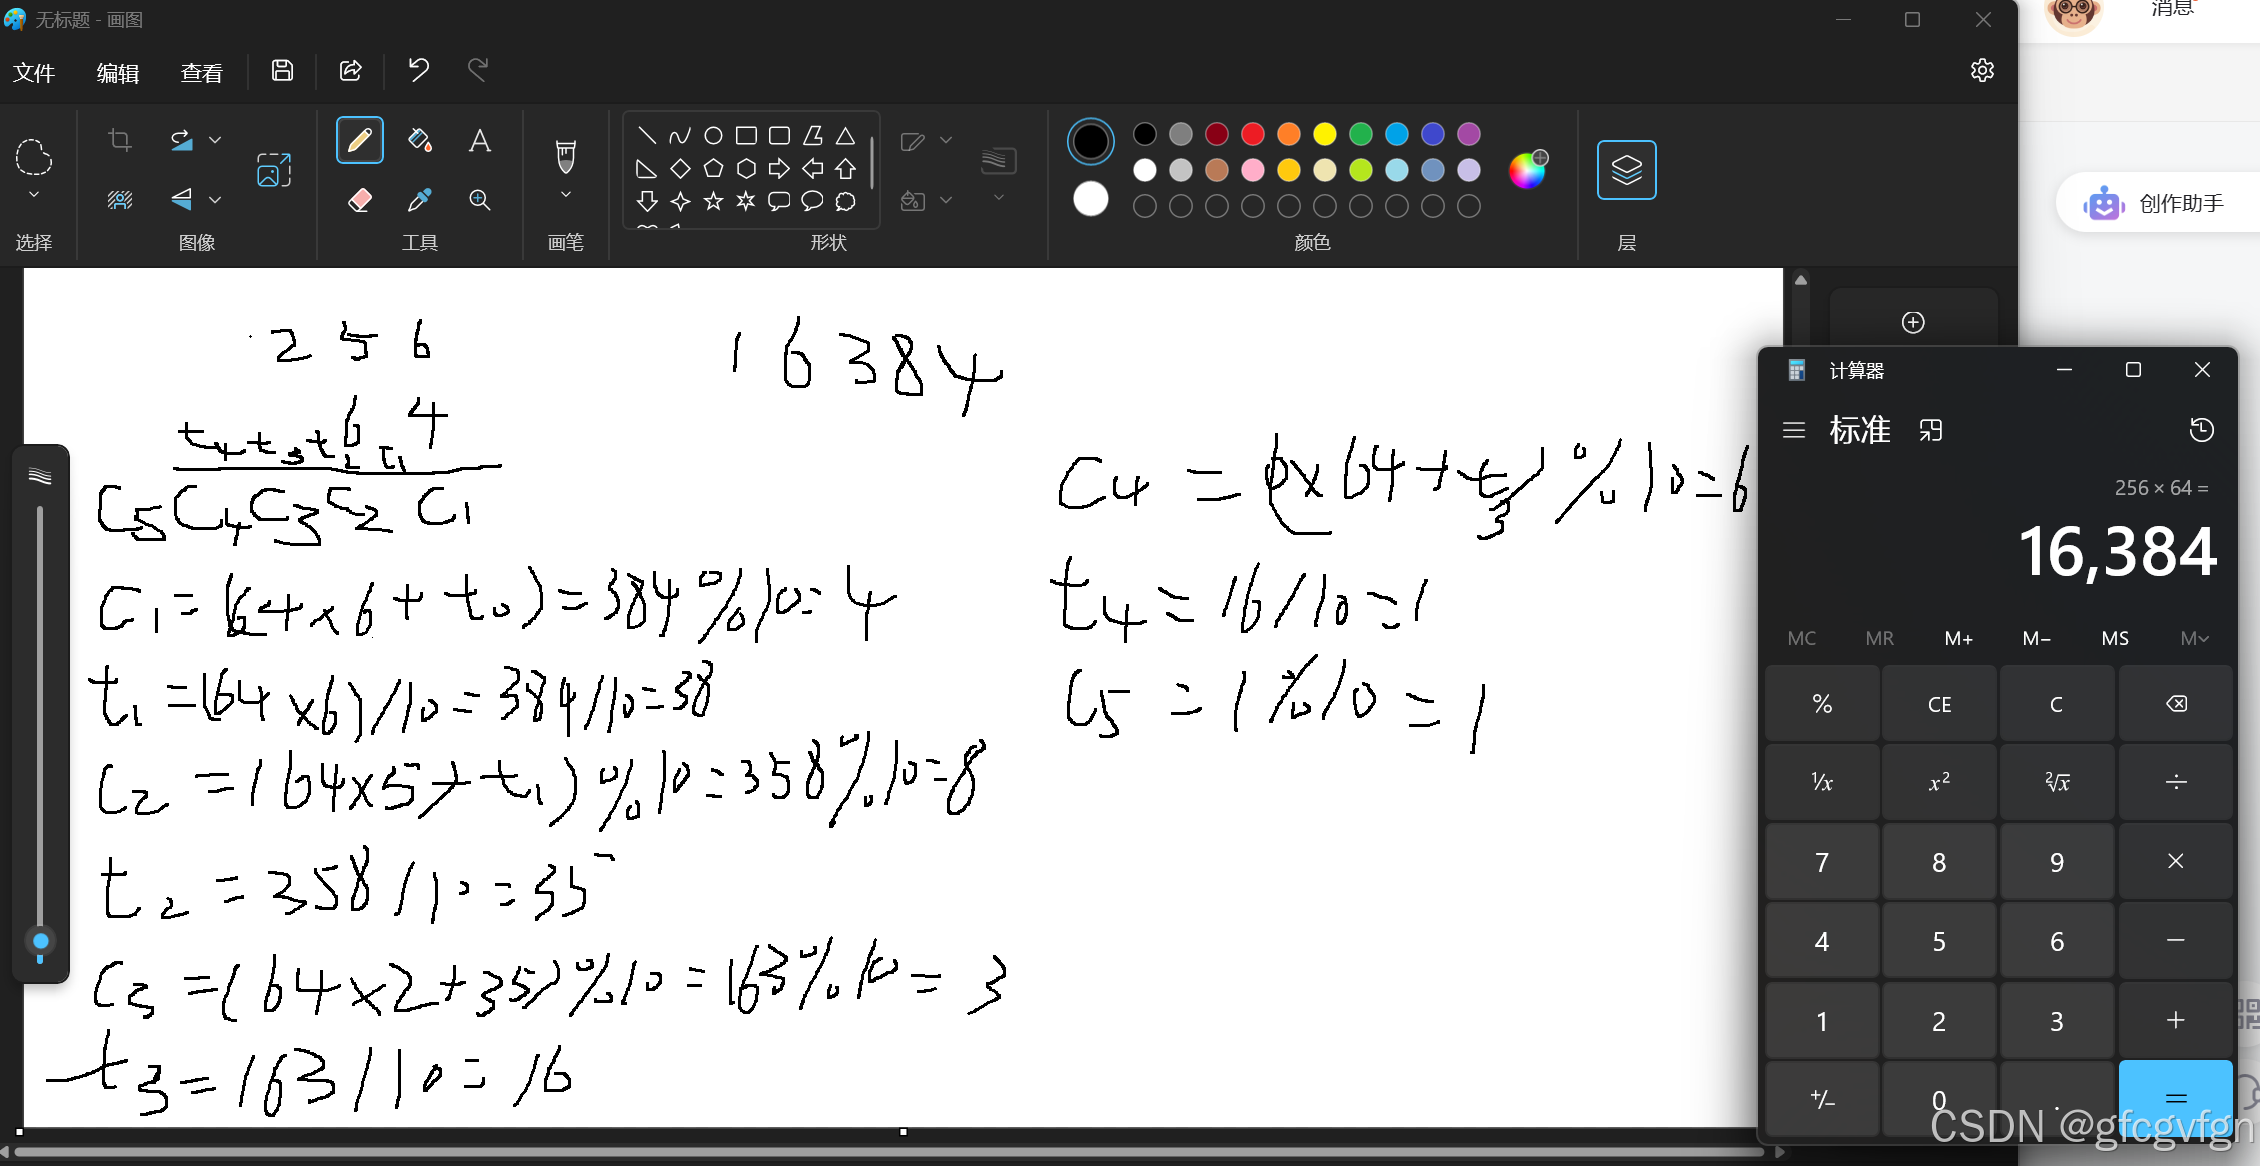 无标题 - 画图
消息
文件 编辑 查看
创作助手
选择 图像 工具 画笔 形状 颜色 层
2 5 6
1 6 3 8 4
6 4
t4 t3 t2 t1
C5 C4 C3 C2 C1
C1 = (64×6+t0) = 384%10=4
t1 = (64×6)/10=384/10=38
C2 = (64×5+t1)%10=358%10=8
t2 = 358/10=35
C3 = (64×2+35)%10=163%10=3
t3 = 163/10=16
C4 = (0×64+t3)%10=6
t4 = 16/10=1
C5 = 1%10=1
计算器
标准
256 × 64 =
16,384
MC MR M+ M− MS M
% CE C
¹/x x² ²√x ÷
7 8 9 ×
4 5 6 −
1 2 3 +
+/− 0 . =
CSDN @gfcgvfgn